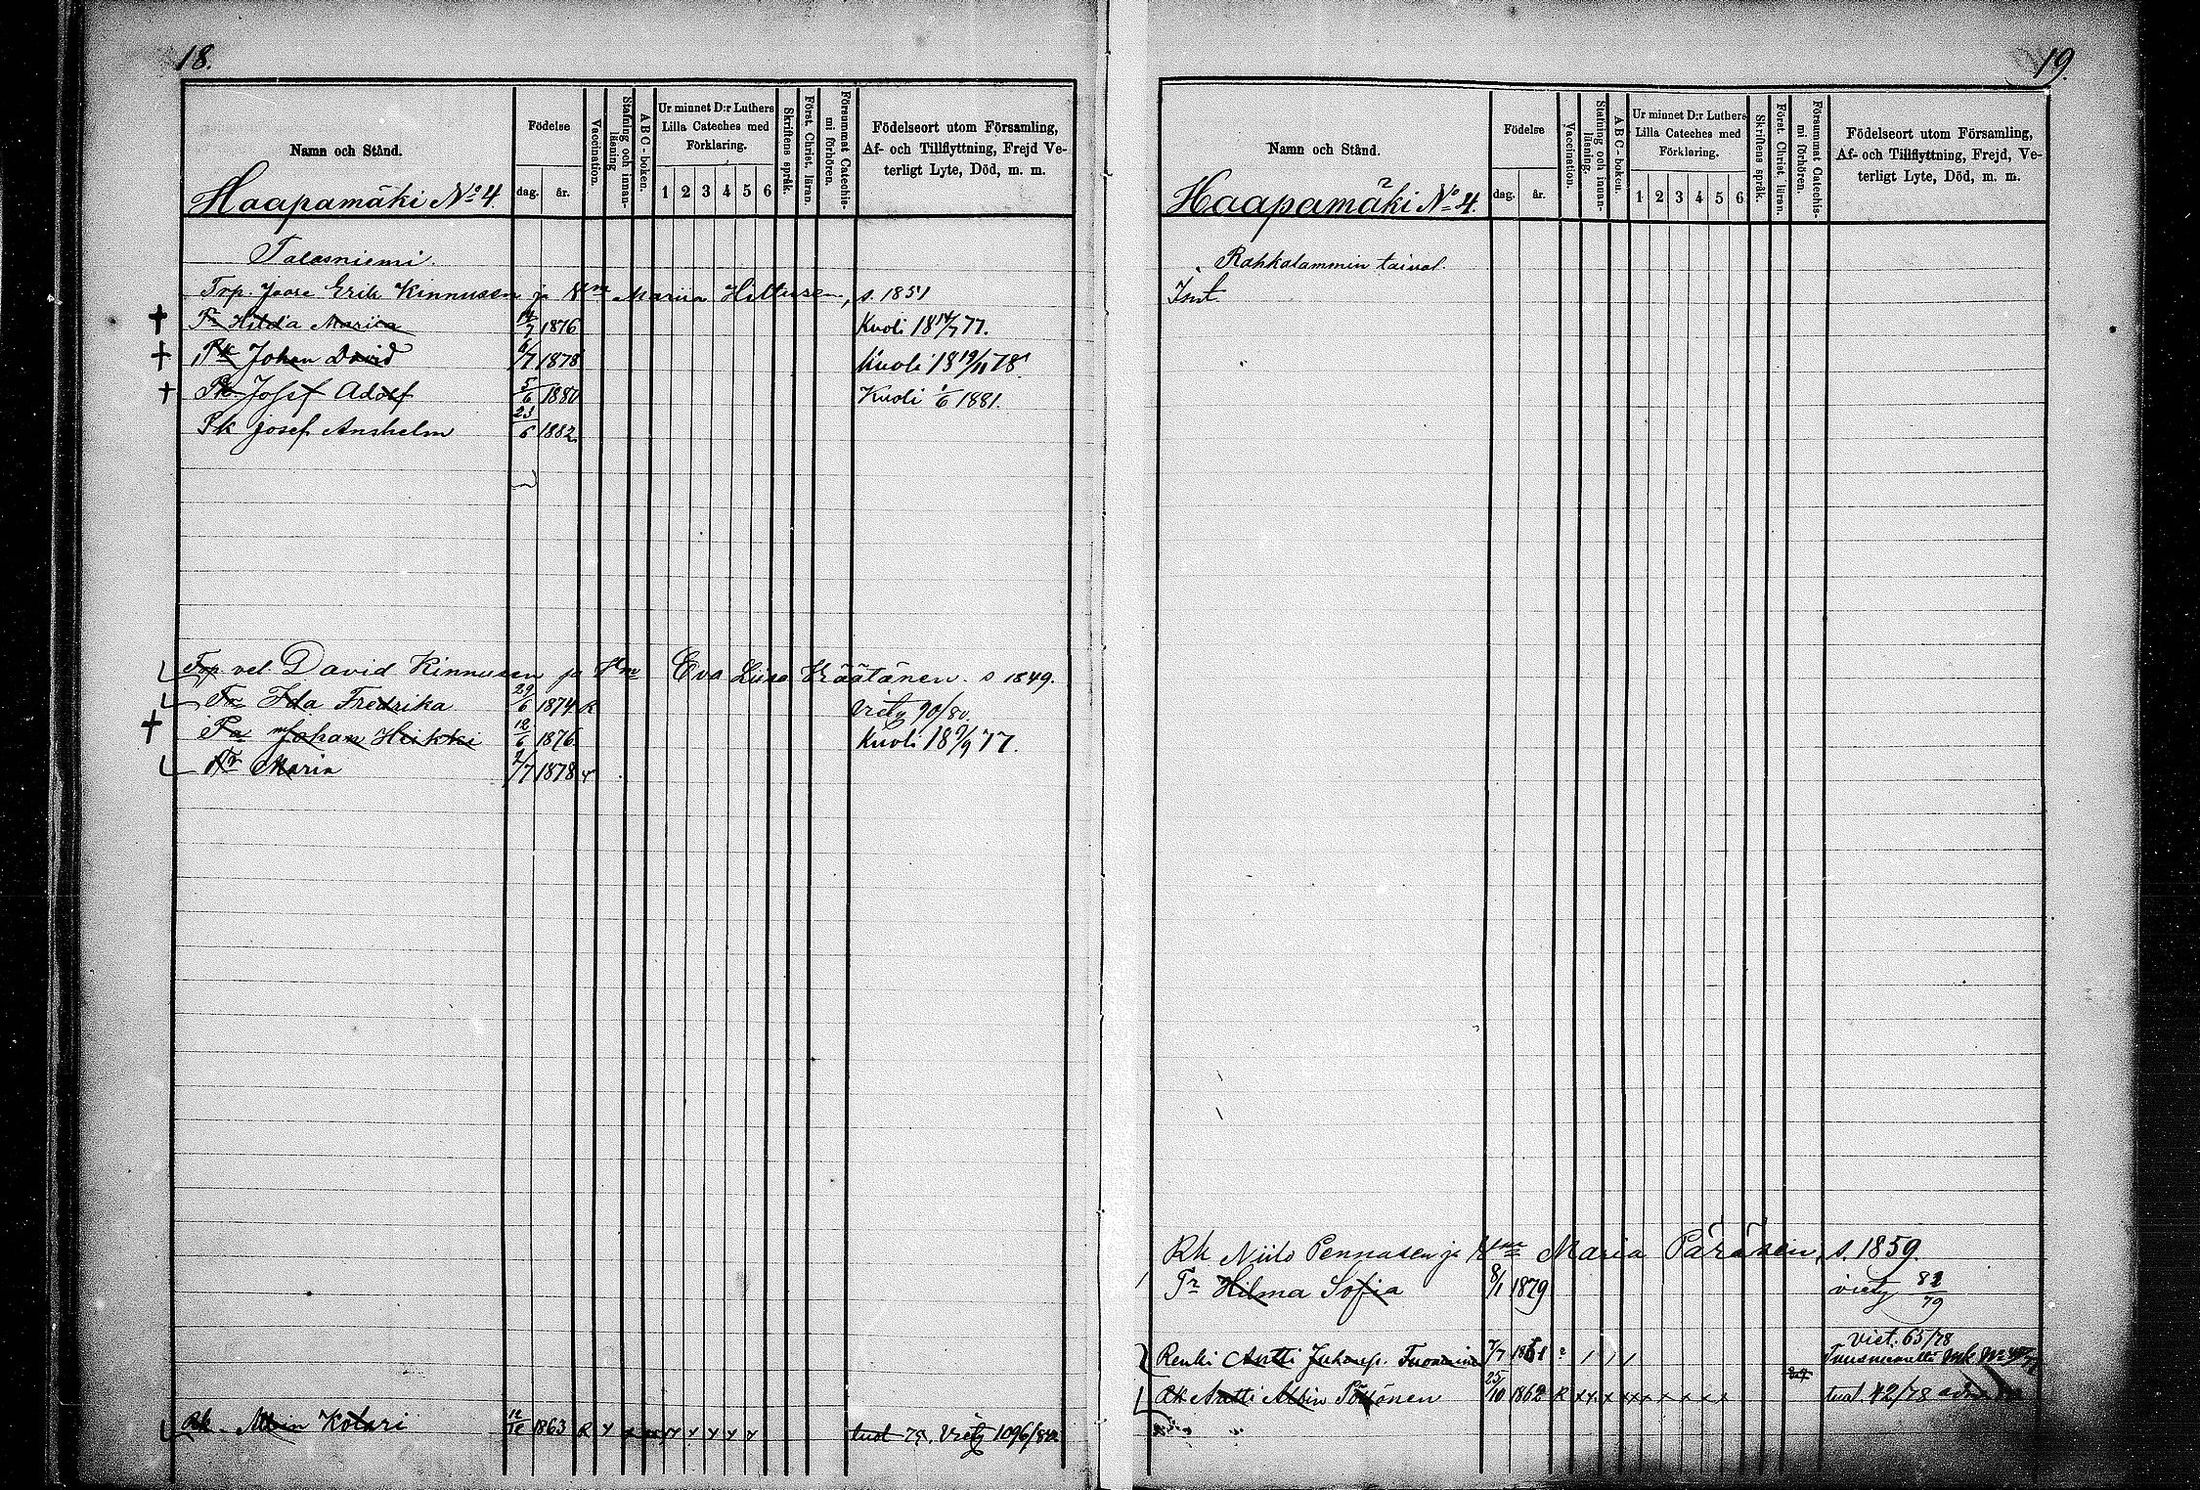 18.
Namn och Stånd.
Födelse
dag. år.
Vaccination.
Stafning och innanläsning
ABC-boken.
Ur minnet D:r Luthers Lilla Cateches med Förklaring.
1 2 3 4 5 6
Skriftens språk.
Först. Christ. läran.
Försummat Catechismi förhören.
Födelseort utom Församling, Af- och Tillflyttning, Frejd Veterligt Lyte, Död, m. m.
Haapamäki No 4.
Talasniemi.
Torp. Jaore Erik Kinnusen ja Vmo Mariia Hiltusen, s. 1851
Tr Hilda Mariia 14/7 1876 Kuoli 18 14/7 77.
Pk Johan David 6/7 1878 Kuoli 18 19/11 78.
Pk Josef Adolf 5/6 1880 Kuoli 1/6 1881.
Pk Josef Anshelm 23/6 1882
Torp vel. David Kinnusen ja Vmo Eva Liisa Väätänen s 1849.
Tr Ida Fredrika 29/6 1874 R Viety 90/80.
Pa Johan Heikki 12/6 1876 Kuoli 18 9/9 77.
Tr Maria 2/7 1878
Rk. Albin Kotari 1863 R tuot 78. Viety 1096/82
19.
Namn och Stånd.
Födelse
dag. år.
Vaccination.
Stafning och innanläsning.
ABC-boken.
Ur minnet D:r Luthers Lilla Cateches med Förklaring.
1 2 3 4 5 6
Skriftens språk.
Först. Christ. läran.
Försummat Catechismi förhören.
Födelseort utom Församling, Af- och Tillflyttning, Frejd, Veterligt Lyte, Död, m. m.
Haapamäki No 4.
Rahkalammin taival.
Int.
Rk Niilo Pennasen ja Maria Päränen, s. 1859.
Tr Hilma Sofia 8/1 1879 viety 82/79
Viet. 65/78
Renki Antti Juhanp. 7/7 1861
Rk Antti Albin 25/10 1862 R x x x x x x x x x tuot 42/78